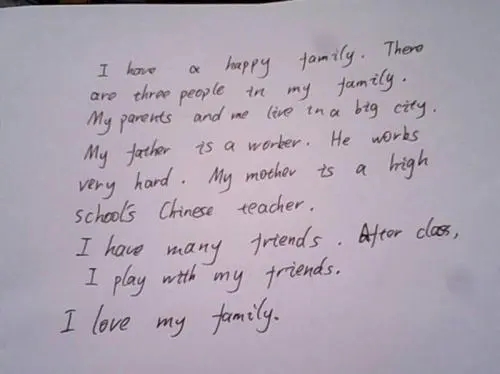 I have a happy family. There
are three people in my family.
My parents and me live in a big city.
My father is a worker. He works
very hard. My mother is a high
school's Chinese teacher.
I have many friends. After class,
I play with my friends.
I love my family.